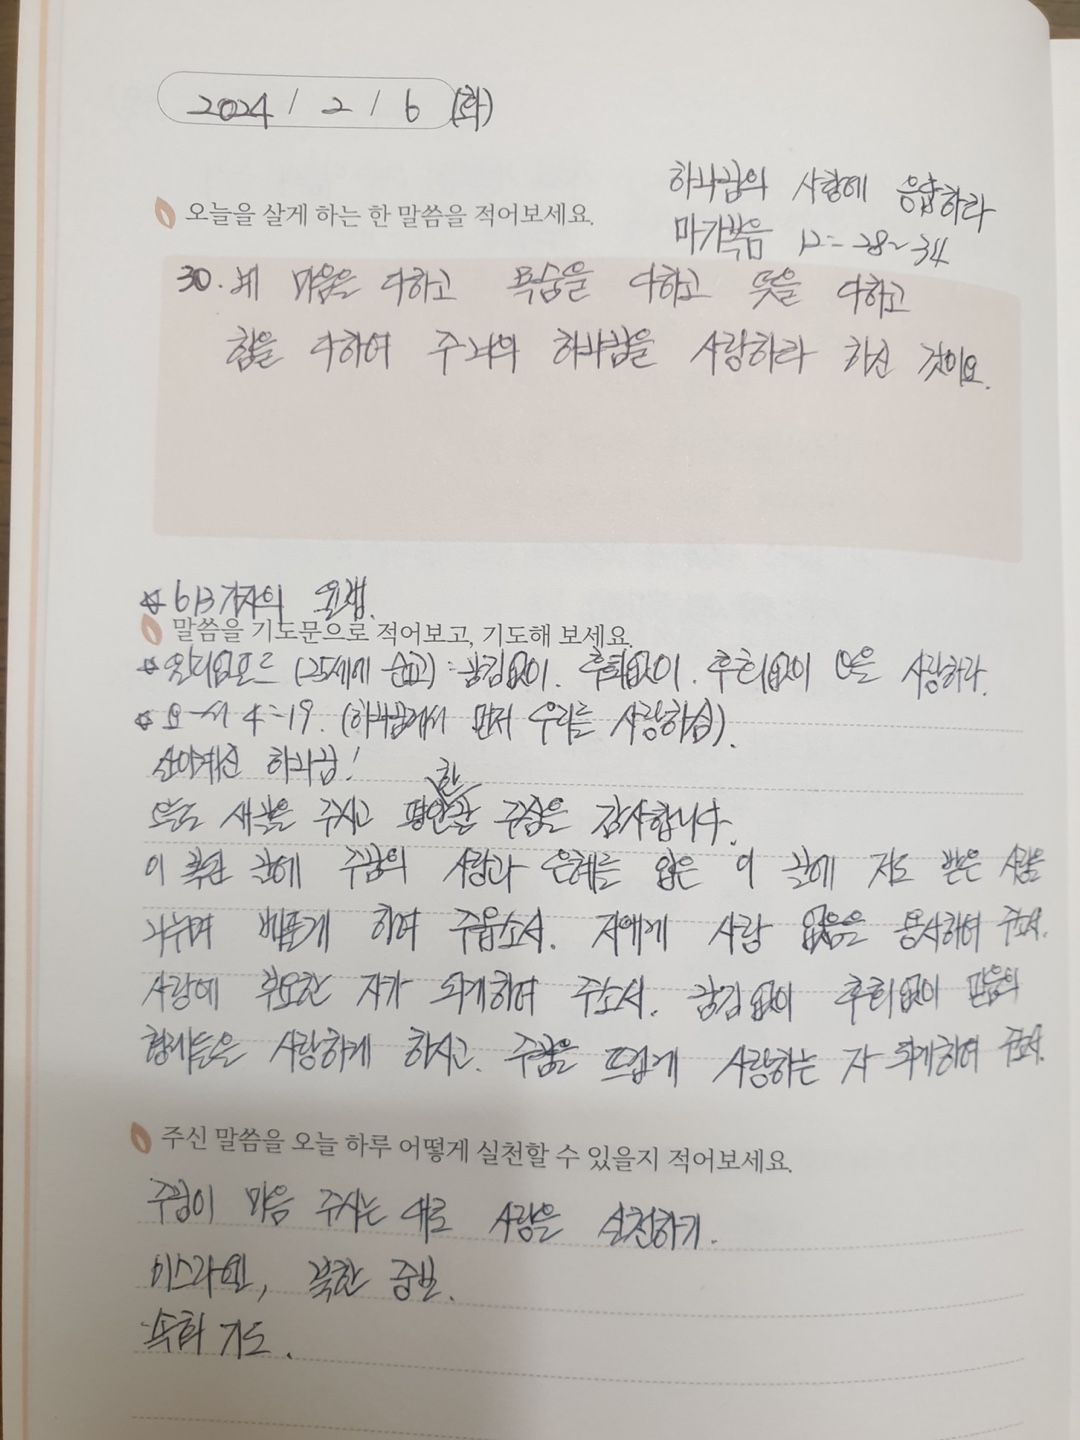 2024 / 2 / 6 (화)
하나님의 사랑에 응답하라
오늘을 살게 하는 한 말씀을 적어보세요.
마가복음 12:28~34
30. 네 마음을 다하고 목숨을 다하고 뜻을 다하고
힘을 다하여 주 너의 하나님을 사랑하라 하신 것이요.
☆ 613가지의 율법.
말씀을 기도문으로 적어보고, 기도해 보세요.
☆ 윌리엄보든 (25세에 순교) : 남김없이. 후퇴없이. 후회없이 사랑하라.
☆ 요일서 4:19. (하나님께서 먼저 우리를 사랑하심).
살아계신 하나님!
오늘도 새날을 주시고 평안한 주심을 감사합니다.
이 복된 날에 주님의 사랑과 은혜를 입은 이 날에 저도 받은 사랑을
나누며 베풀게 하여 주옵소서. 저에게 사랑 없음을 용서하여 주소서.
사랑에 부요한 자가 되게하여 주소서. 남김없이 후회없이 믿음의
형제들을 사랑하게 하시고. 주님을 뜨겁게 사랑하는 자 되게하여 주소서.
주신 말씀을 오늘 하루 어떻게 실천할 수 있을지 적어보세요.
주님이 마음 주시는 대로 사랑을 실천하기.
이스라엘, 북한 중보.
속회 기도.